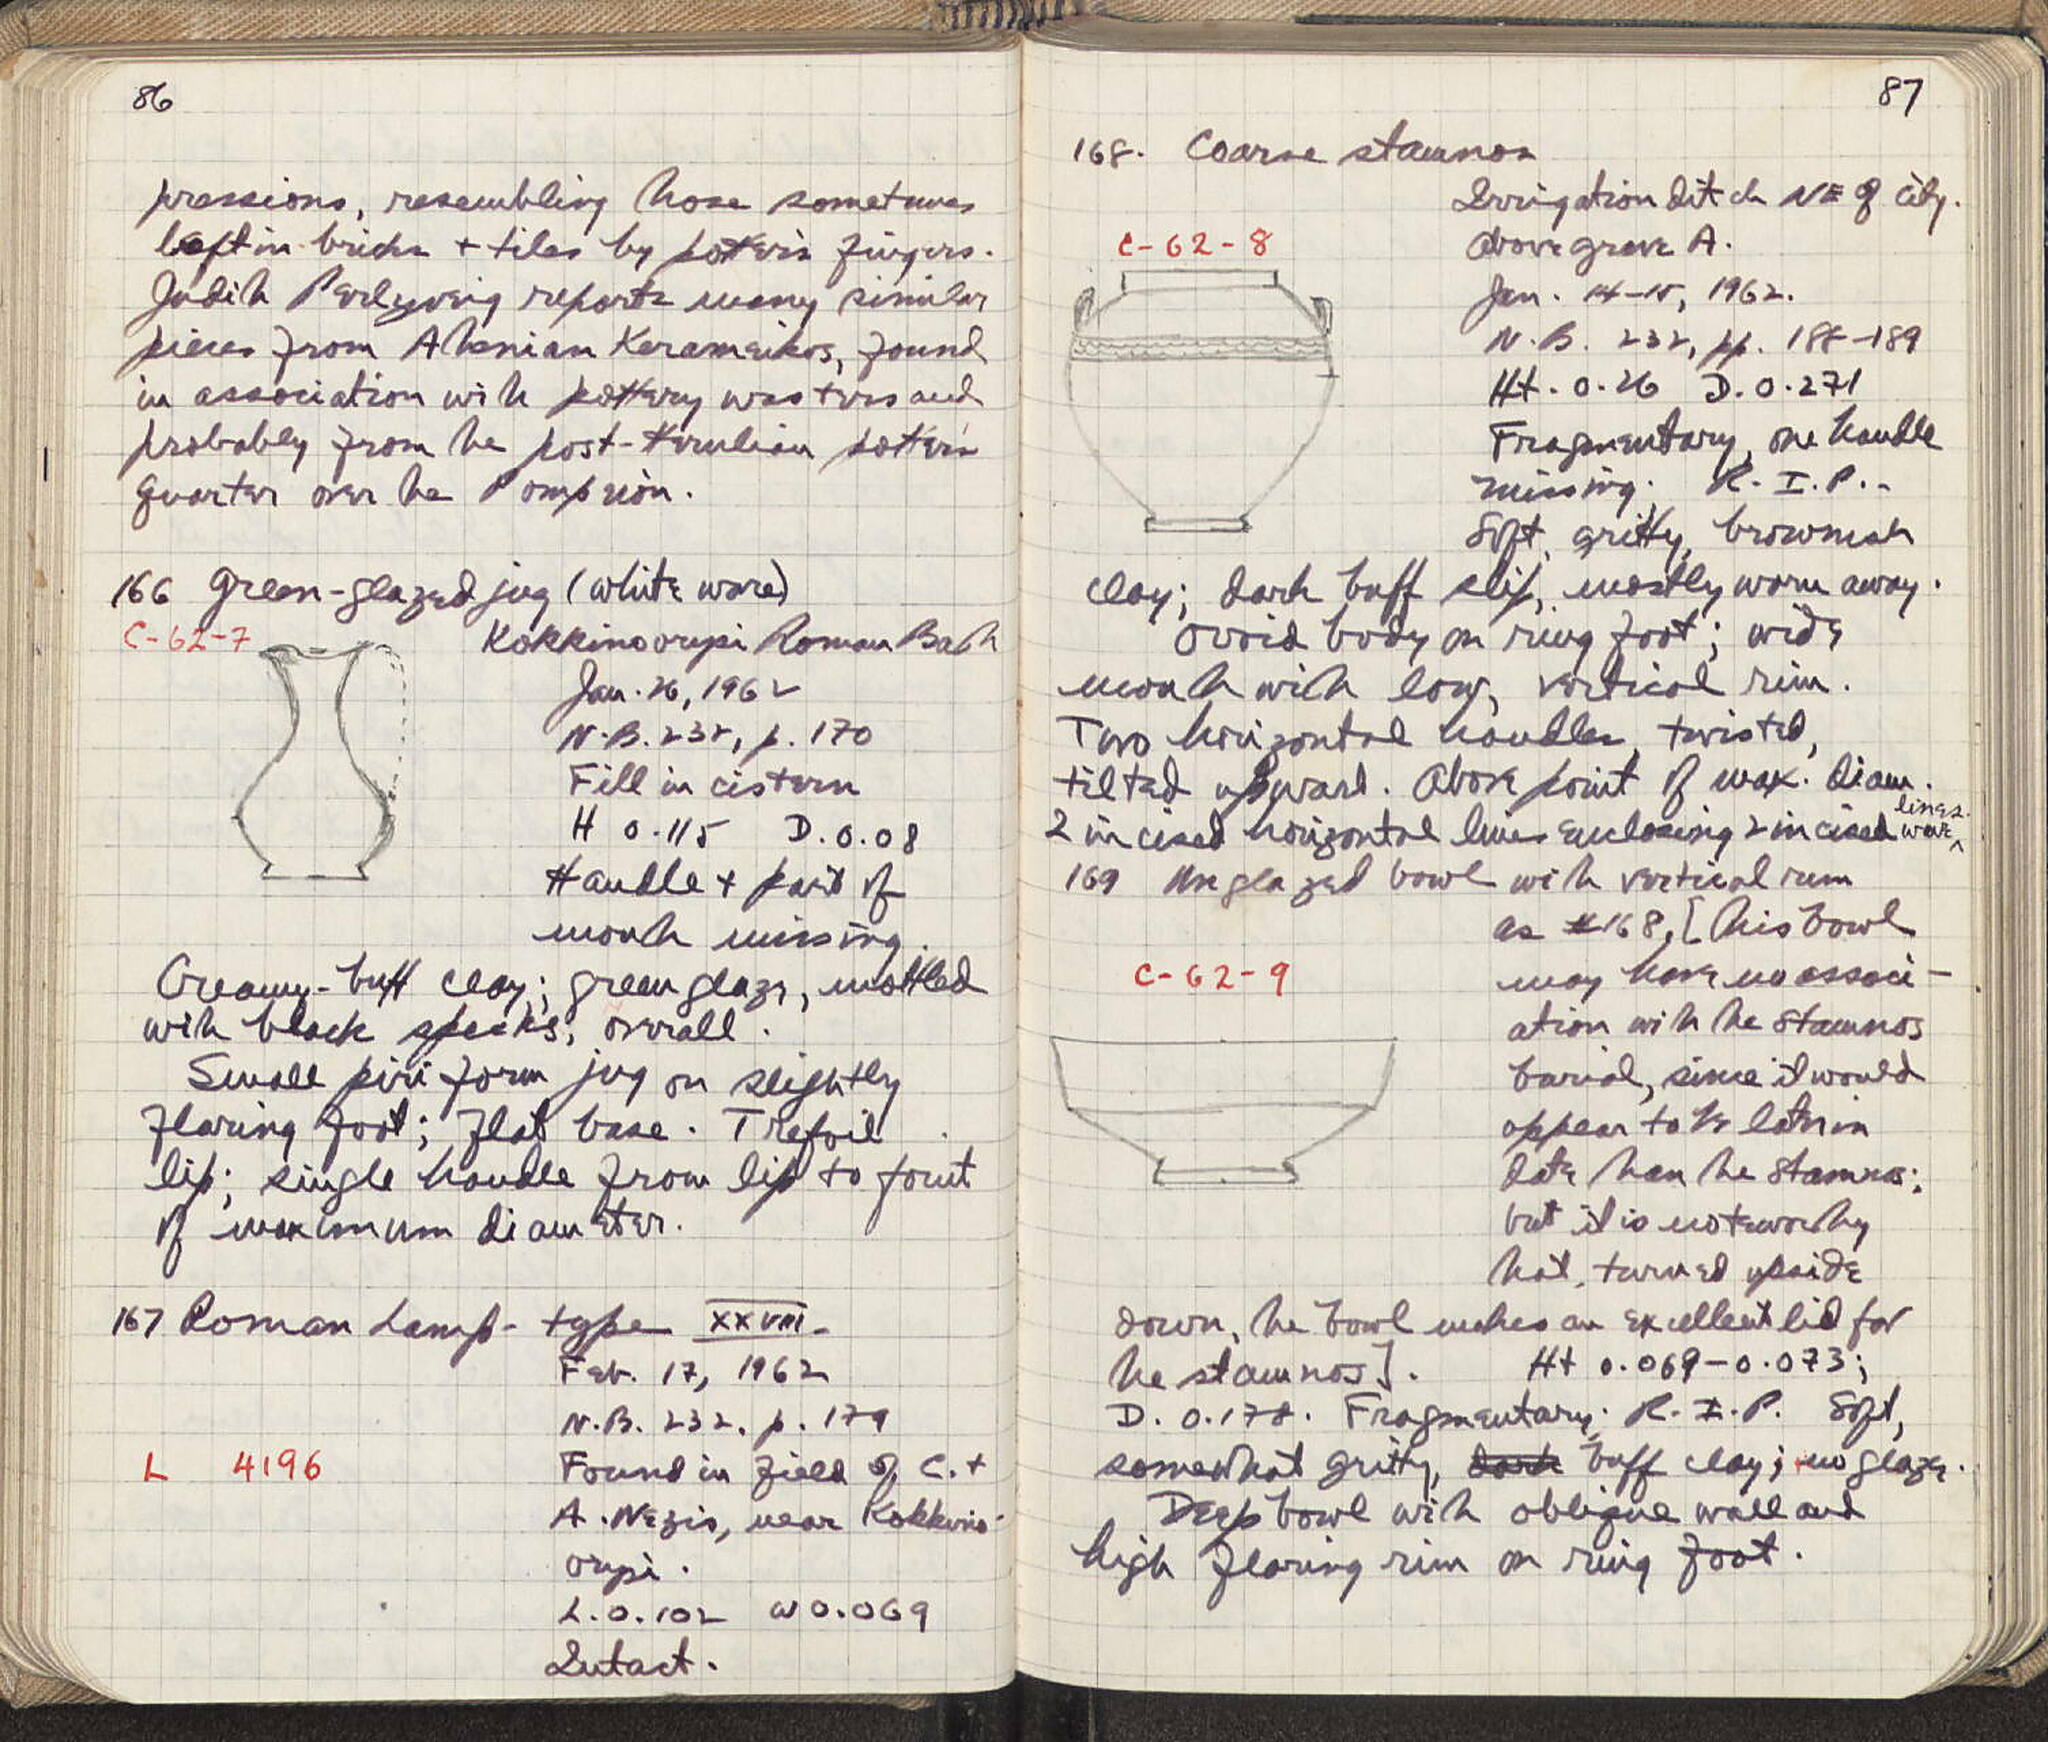 86
pressions, resembling those sometimes
left in bricks + tiles by potter's fingers.
Judith Perlzweig reports many similar
pieces from Athenian Kerameikos, found
in association with pottery wasters and
probably from the post-Herulian potters'
quarter over the Pompeion.
166 Green-glazed jug (white ware)
C-62-7
Kokkinovrysi Roman Bath
Jan. 26, 1962
N.B. 232, p. 170
Fill in cistern
H 0.115 D. 0.08
Handle + part of
mouth missing.
Creamy-buff clay; green glaze, mottled
with black specks, overall.
Small piriform jug on slightly
flaring foot; flat base. Trefoil
lip; single handle from lip to point
of maximum diameter.
167 Roman Lamp - type XXVIII.
Feb. 17, 1962
N.B. 232, p. 179
L 4196
Found in field of C. +
A. Nezis, near Kokkino-
vrysi.
L. 0.102 W 0.069
Intact.
87
168. Coarse stamnos
Irrigation ditch NE of city.
C-62-8
Above grave A.
Jan. 14-15, 1962.
N.B. 232, pp. 188-189
Ht. 0.26 D. 0.271
Fragmentary, one handle
missing; R.I.P.
Soft, gritty, brownish
clay; dark buff slip, mostly worn away.
Ovoid body on ring foot; wide
mouth with low, vertical rim.
Two horizontal handles, twisted,
tilted upward. Above point of max. diam.
2 incised horizontal lines enclosing 2 incised wave lines.
169 Unglazed bowl with vertical rim
as #168, [this bowl
C-62-9
may have no associ-
ation with the stamnos
burial, since it would
appear to be later in
date than the stamnos;
but it is noteworthy
that, turned upside
down, the bowl makes an excellent lid for
the stamnos]. Ht 0.069-0.073;
D. 0.178. Fragmentary; R.I.P. Soft,
somewhat gritty, dark buff clay; no glaze.
Deep bowl with oblique wall and
high flaring rim on ring foot.